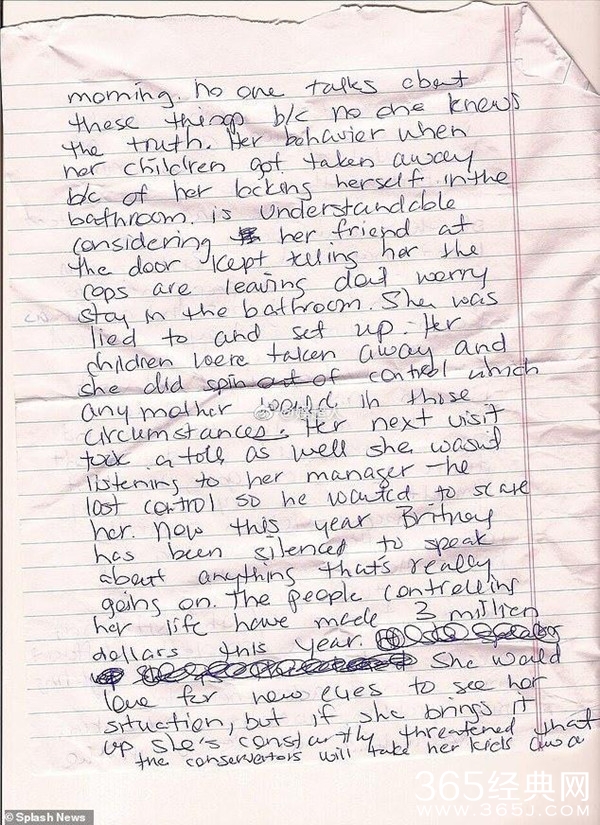 morning. no one talks about
these things b/c no one knows
the truth. Her behavior when
her children got taken away
b/c of her locking herself in the
bathroom is understandable
considering her friend at
the door kept telling her the
cops are leaving dont worry
stay in the bathroom. She was
lied to and set up. Her
children were taken away and
she did spin out of control which
any mother would in those
circumstances. Her next visit
took a toll as well she wasnt
listening to her manager - he
lost control so he wanted to scare
her. Now this year Britney
has been silenced to speak
about anything thats really
going on. The people controlling
her life have made 3 million
dollars this year.
She would
love for new eyes to see her
situation, but if she brings it
up she's constantly threatened that
the conservators will take her kids awa
365经典网
WWW.365J.COM
© Splash News